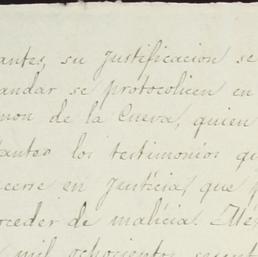 antes, su justificacion se
andar se protocolicen en
mon de la Cueva, quien
tantos los testimonios qu
cerse en Justicia, que
roceder de malicia. Méx
mil ochocientos sesent